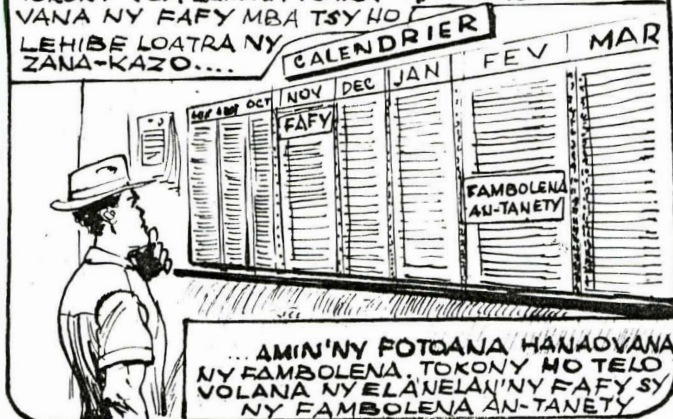 VANA NY FAFY MBA TSY HO
LEHIBE LOATRA NY
ZANA-KAZO....
CALENDRIER
OCT NOV DEC JAN FEV MAR
FAFY
FAMBOLENA
AN-TANETY
... AMIN'NY FOTOANA HANAOVANA
NY FAMBOLENA. TOKONY HO TELO
VOLANA NY ELANELAN'NY FAFY SY
NY FAMBOLENA AN-TANETY